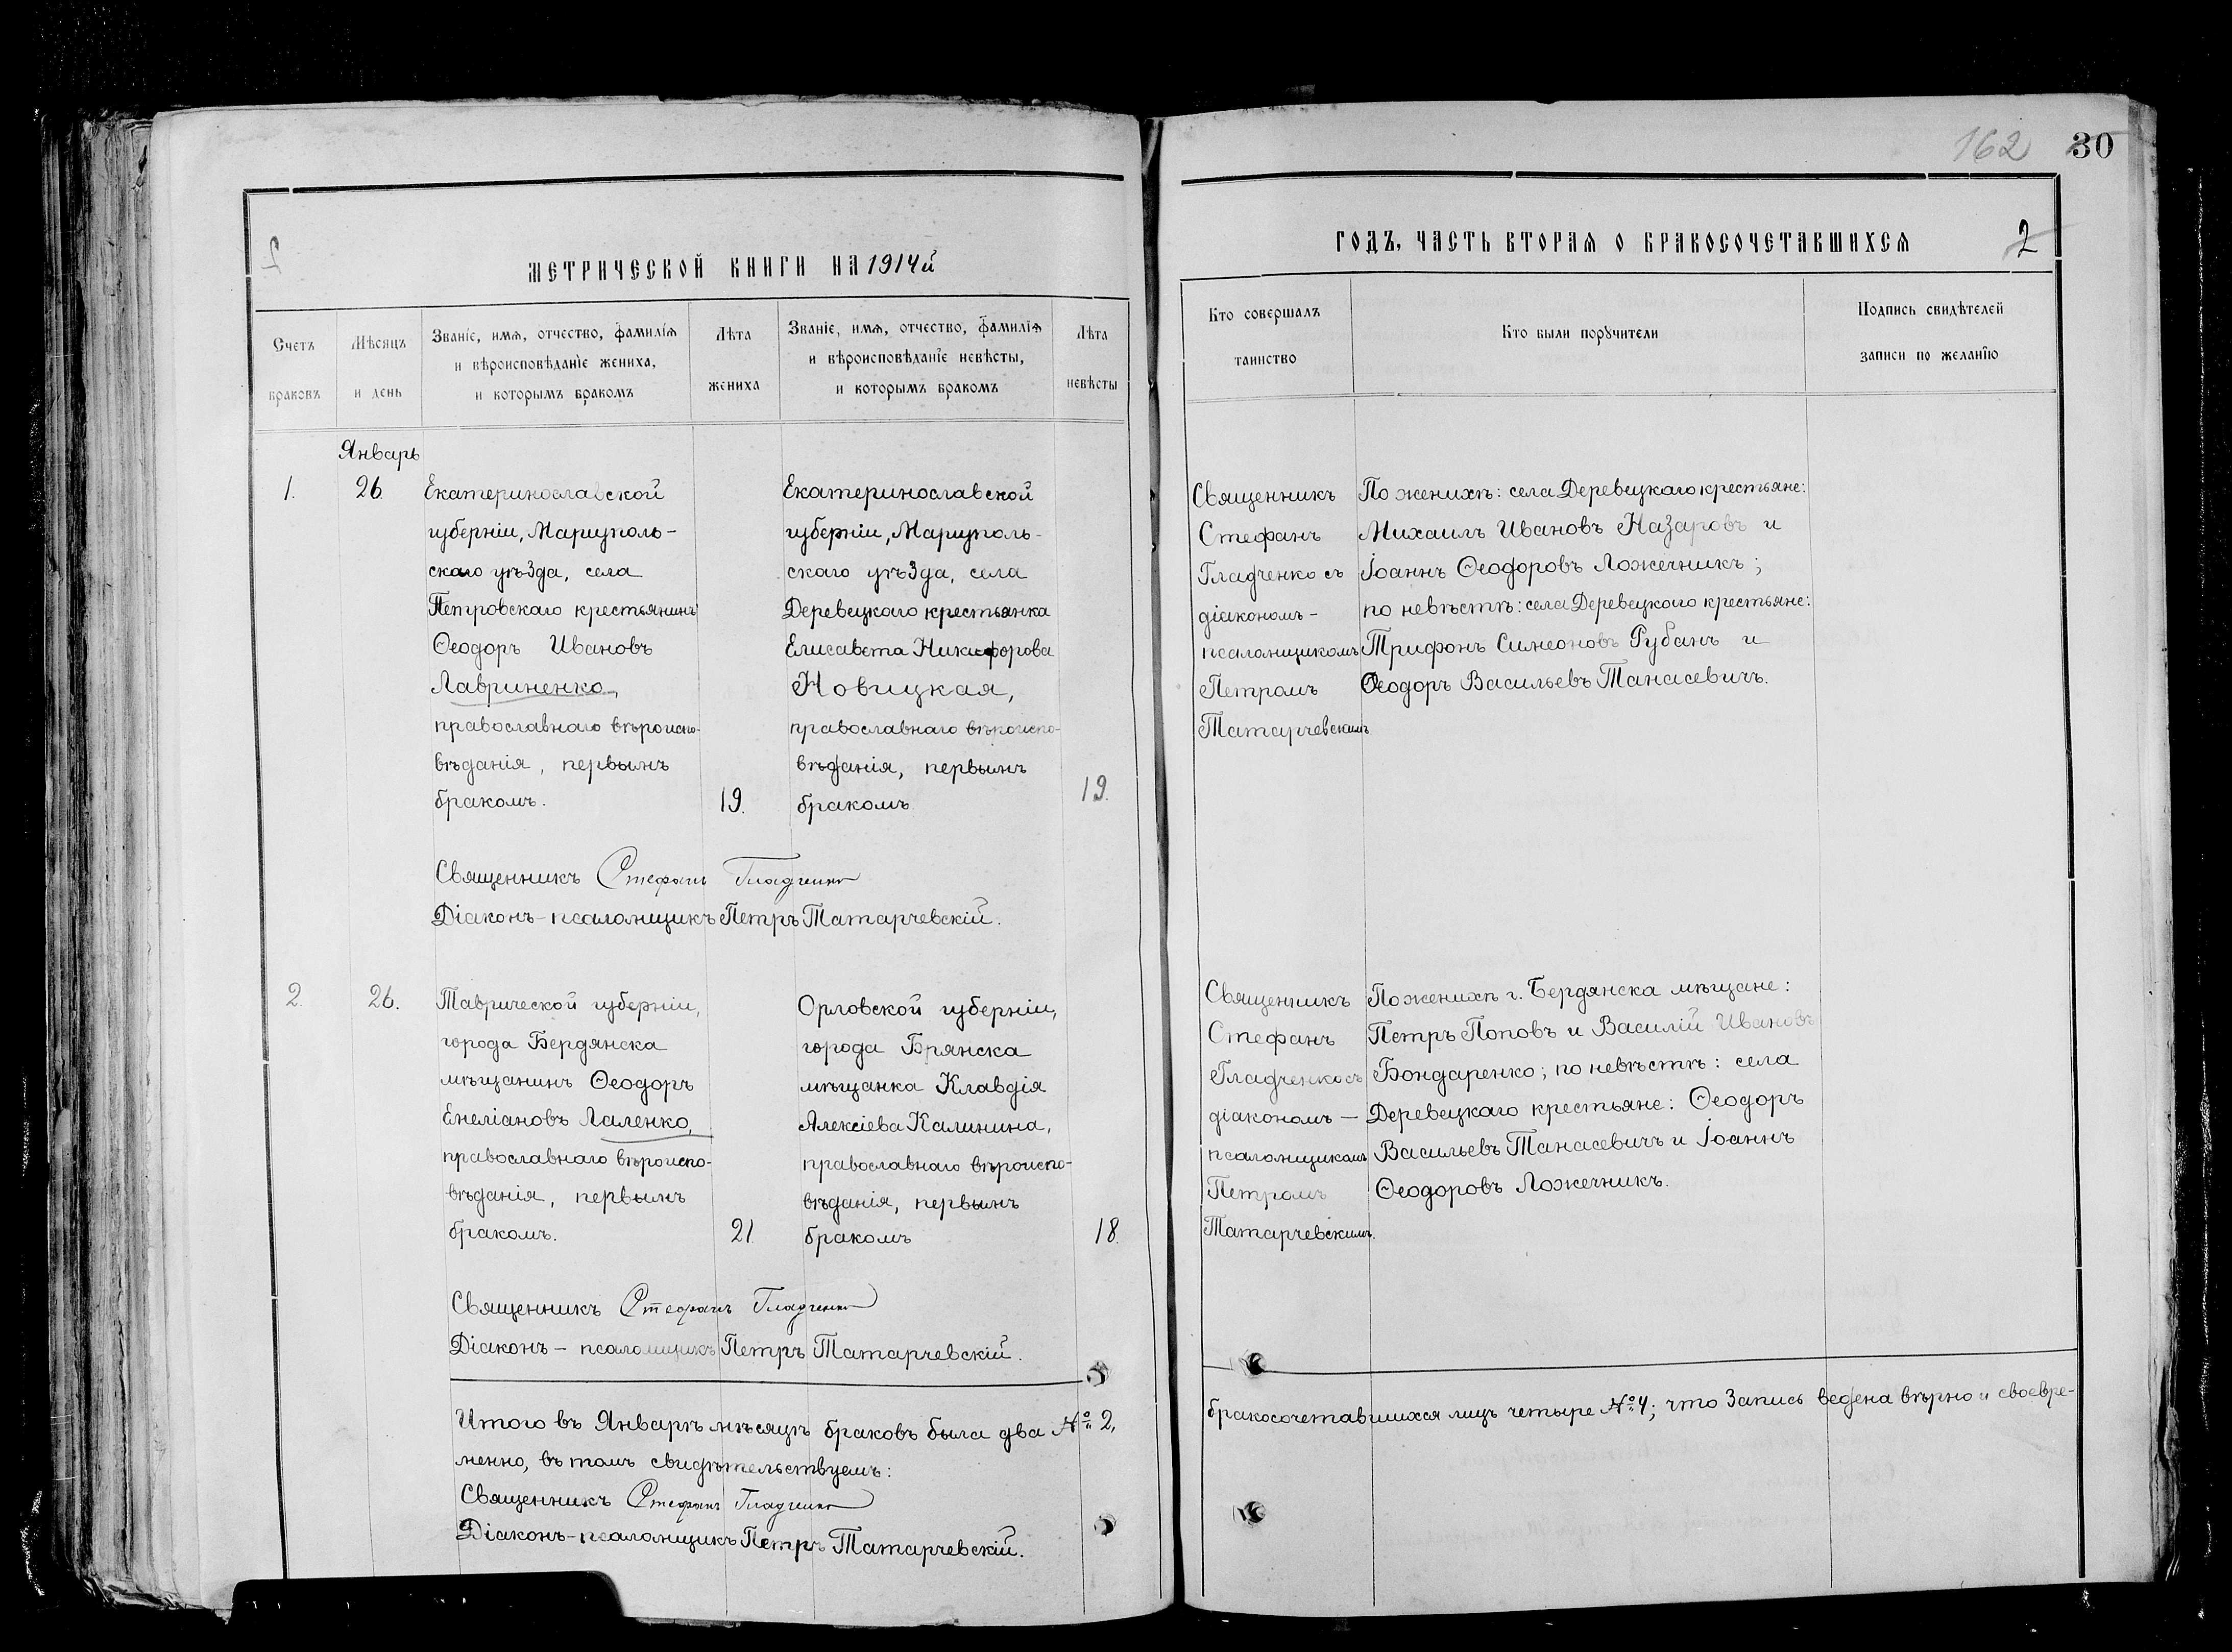 162 30
1
МЕТРИЧЕСКОЙ КНИГИ НА 1914й
Счетъ
браковъ
Мѣсяцъ
и день
Званіе, имя, отчество, фамилія
и вѣроисповѣданіе жениха,
и которымъ бракомъ
Лѣта
жениха
Званіе, имя, отчество, фамилія
и вѣроисповѣданіе невѣсты,
и которымъ бракомъ
Лѣта
невѣсты
Январь
1.
26.
Екатеринославской
губерніи, Маріуполь-
скаго уѣзда, села
Петровскаго крестьянинъ
Ѳеодоръ Ивановъ
Лавриненко,
православнаго вѣроиспо-
вѣданія, первымъ
бракомъ.
19.
Екатеринославской
губерніи, Маріуполь-
скаго уѣзда, села
Деревецкаго крестьянка
Елисавета Никифорова
Новицкая,
православнаго вѣроиспо-
вѣданія, первымъ
бракомъ
19.
Священникъ Стефанъ Гладченко
Діаконъ-псаломщикъ Петръ Татарчевскій.
2.
26.
Таврической губерніи,
города Бердянска
мѣщанинъ Ѳеодоръ
Емеліановъ Лаленко,
православнаго вѣроиспо-
вѣданія, первымъ
бракомъ.
21.
Орловской губерніи,
города Брянска
мѣщанка Клавдія
Алексіева Калинина,
православнаго вѣроиспо-
вѣданія, первымъ
бракомъ
18.
Священникъ Стефанъ Гладченко
Діаконъ-псаломщикъ Петръ Татарчевскій.
Итого въ Январѣ мѣсяцѣ браковъ было два № 2,
менно, въ томъ свидѣтельствуемъ:
Священникъ Стефанъ Гладченко
Діаконъ-псаломщикъ Петръ Татарчевскій.
ГОДЪ, ЧАСТЬ ВТОРАЯ О БРАКОСОЧЕТАВШИХСЯ
2
Кто совершалъ
таинство
Кто были поручители
Подпись свидѣтелей
записи по желанію
Священникъ
Стефанъ
Гладченко съ
діакономъ-
псаломщикомъ
Петромъ
Татарчевскимъ.
По женихѣ: села Деревецкаго крестьяне:
Михаилъ Ивановъ Назаровъ и
Іоаннъ Ѳеодоровъ Ложечникъ;
по невѣстѣ: села Деревецкаго крестьяне:
Трифонъ Симеоновъ Рубанъ и
Ѳеодоръ Васильевъ Танасевичъ.
Священникъ
Стефанъ
Гладченко съ
діакономъ-
псаломщикомъ
Петромъ
Татарчевскимъ.
По женихѣ г. Бердянска мѣщане:
Петръ Поповъ и Василій Ивановъ
Бондаренко; по невѣстѣ: села
Деревецкаго крестьяне: Ѳеодоръ
Васильевъ Танасевичъ и Іоаннъ
Ѳеодоровъ Ложечникъ.
бракосочетавшихся лицъ четыре № 4; что запись ведена вѣрно и своевре-